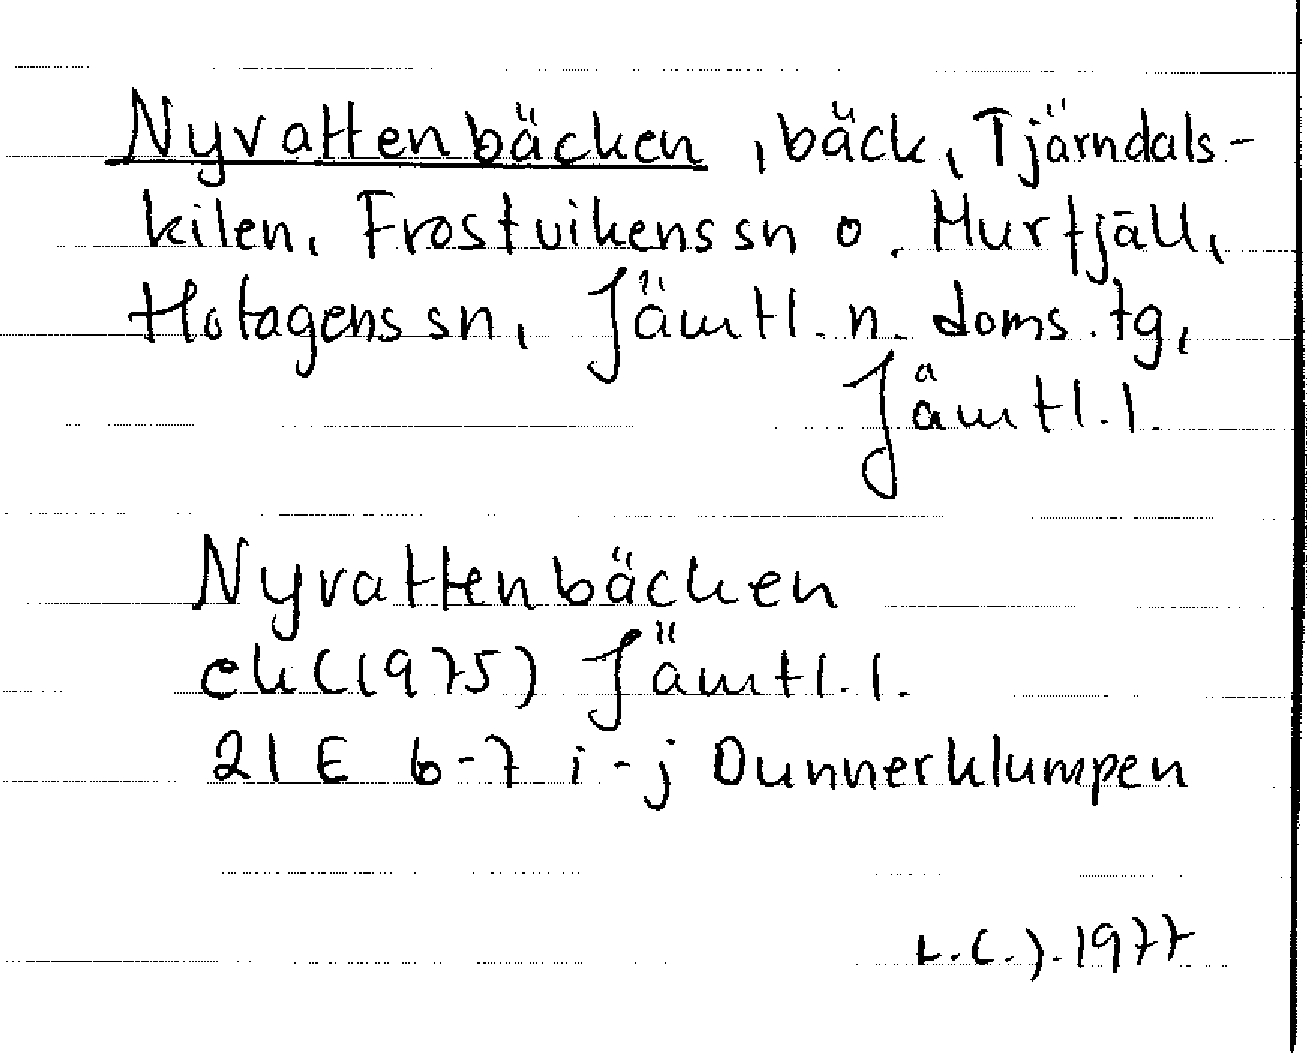 Nyvattenbäcken, bäck, Tjärndals-
kilen, Frostvikens sn o. Murfjäll,
Hotagens sn, Jämtl. n. doms. tg,
Jämtl. l.
Nyvattenbäcken
ek (1975) Jämtl. l.
21 E 6-7 i-j Dunnerklumpen
L.C.J. 1977